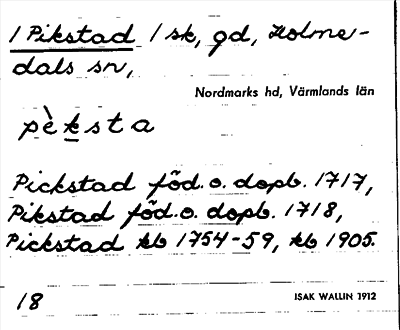 1 Pikstad 1 sk, gd, Holme-
dals sn,
Nordmarks hd, Värmlands län
pèksta
Pickstad föd. o. dopb. 1717,
Pikstad föd. o. dopb. 1718,
Pickstad kb 1754-59, kb 1905.
18
ISAK WALLIN 1912